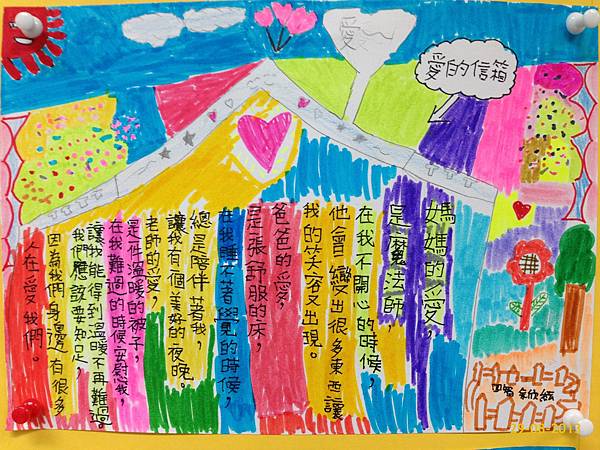 愛
愛的信箱
媽媽的愛,
是魔法師,
在我不開心的時候,
他會變出很多東西讓
我的笑容又出現。
爸爸的愛,
是張舒服的床,
在我睡不著覺的時候,
總是陪伴著我,
讓我有個美好的夜晚。
老師的愛,
是一件溫暖的被子,
在我難過的時候安慰我,
讓我能得到溫暖不再難過。
我們應該要知足,
因為我們身邊有很多
人在愛我們。